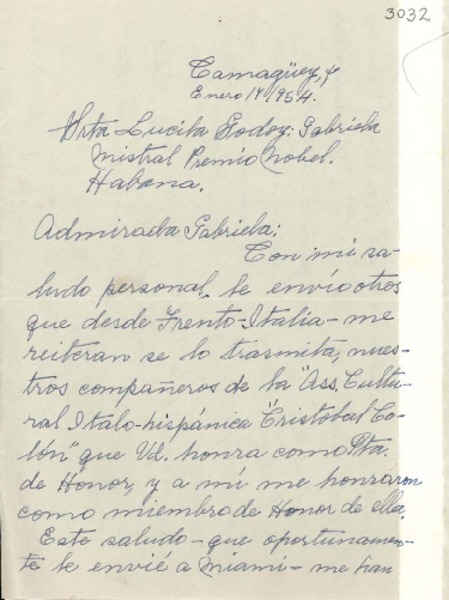 3032
Camagüey,
Enero 19/954.
Srta Lucila Godoy: Gabriela
Mistral Premio Nobel.
Habana.
Admirada Gabriela:
Con mi sa-
ludo personal te envío otros
que desde Trento-Italia-me
reiteran se lo trasmita, nues-
tros compañeros de la "Ass. Cultu-
ral Italo-hispánica "Cristobal Co-
lón" que Vd. honra como Pta.
de Honor, y a mí me honraron
como miembro de Honor de ella.
Este saludo-que oportunamen-
te le envié a Miami-me han